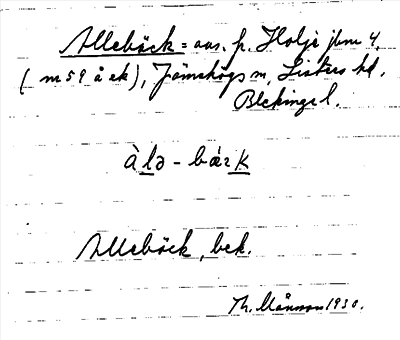 Allebäck = avs. fr. Holje jbm 4,
(m 59 å ek), Jämshögs sn, Listers hd,
Blekinge l.
àlə - bάrk
Allebäck, bek.
Th. Månsson 1930.